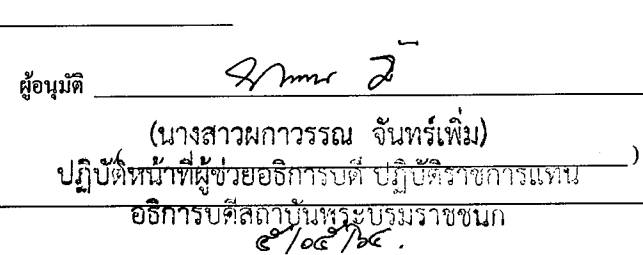 ผู้อนุมัติ
(นางสาวผกาวรรณ จันทร์เพิ่ม)
ปฏิบัติหน้าที่ผู้ช่วยอธิการบดี ปฏิบัติราชการแทน
อธิการบดีสถาบันพระบรมราชชนก
๕/๐๕/๖๔.